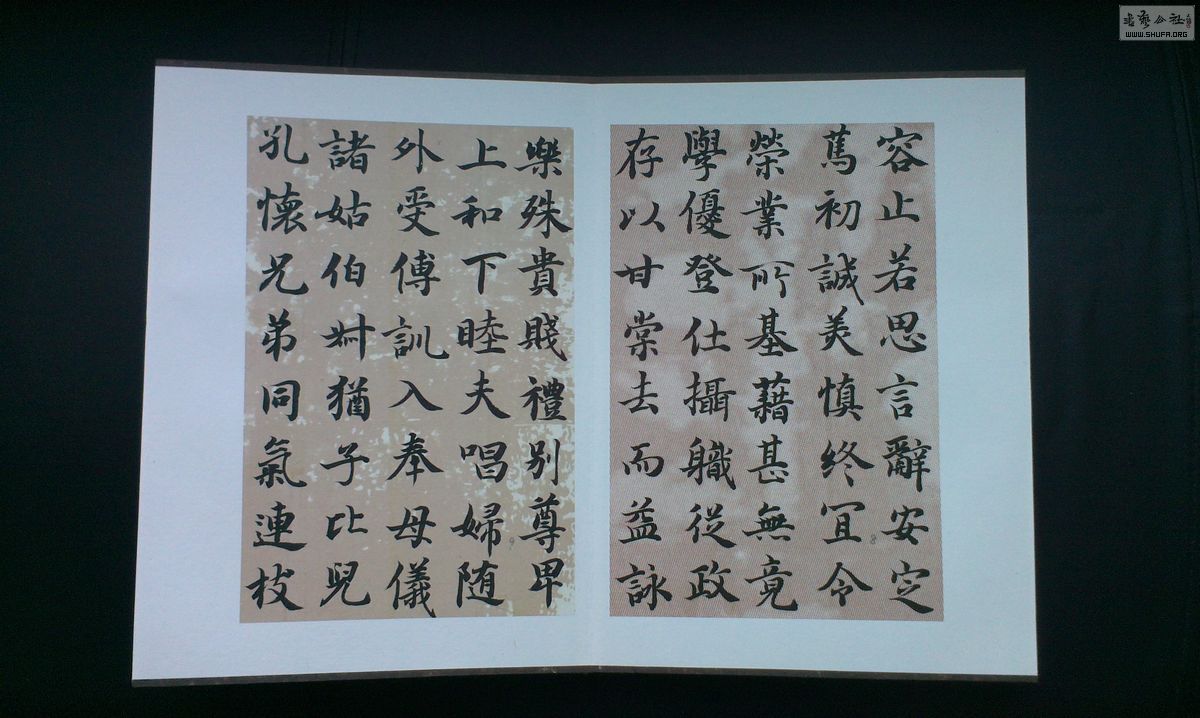 容止若思言辭安定
篤初誠美慎終宜令
榮業所基藉甚無竟
學優登仕攝職從政
存以甘棠去而益詠
樂殊貴賤禮別尊卑
上和下睦夫唱婦随
外受傅訓入奉母儀
諸姑伯叔猶子比兒
孔懷兄弟同氣連枝
書藝公社
WWW.SHUFA.ORG
9
8